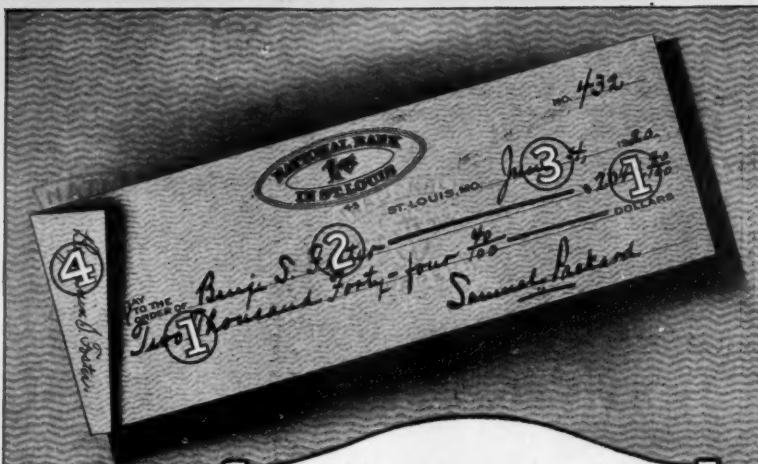 NO. 432
NATIONAL BANK
IN ST. LOUIS
ST. LOUIS, MO. 3 1920
$ 204 1 40/100
2
Benj. S.
PAY TO THE ORDER OF
Two Thousand Forty-four 40/100 DOLLARS
1
Samuel Packard
4